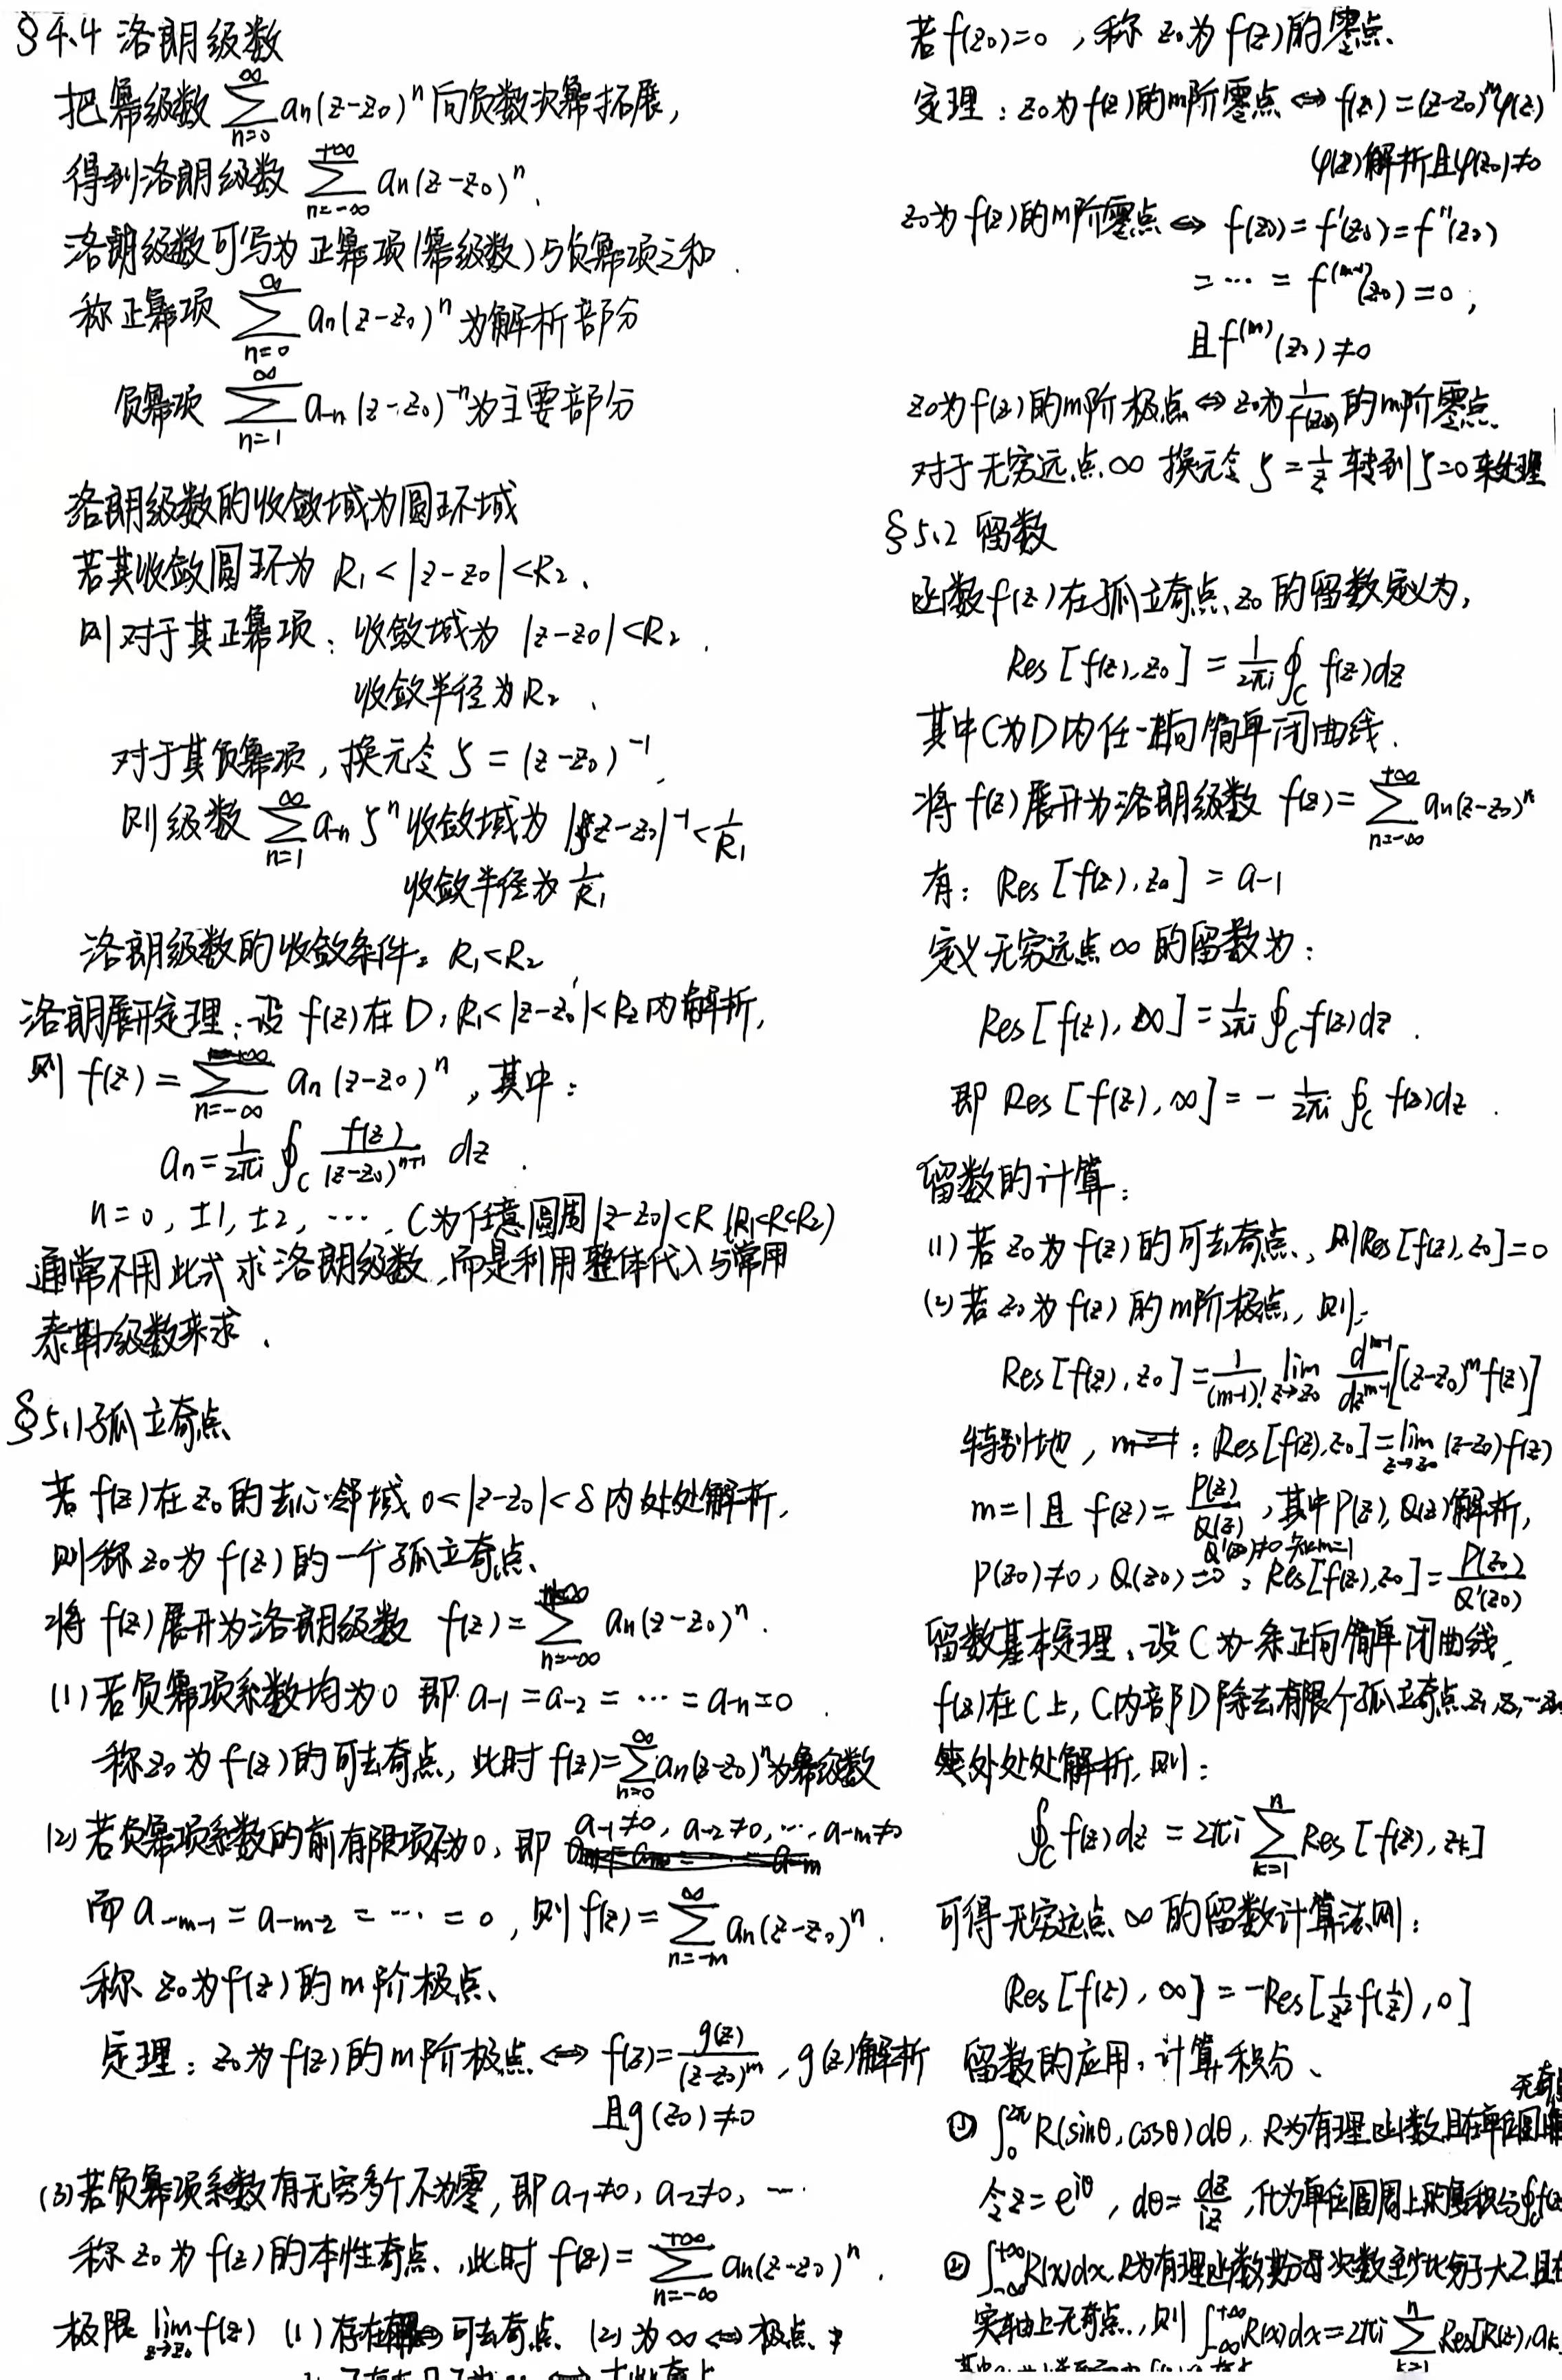 §4.4 洛朗级数
把幂级数 ∑_{n=0}^{∞} aₙ(z-z₀)ⁿ 向负数次幂拓展,
得到洛朗级数 ∑_{n=-∞}^{+∞} aₙ(z-z₀)ⁿ.
洛朗级数可写为正幂项(幂级数)与负幂项之和.
称正幂项 ∑_{n=0}^{∞} aₙ(z-z₀)ⁿ 为解析部分
负幂项 ∑_{n=1}^{∞} a₋ₙ(z-z₀)⁻ⁿ 为主要部分
洛朗级数的收敛域为圆环域
若其收敛圆环为 R₁<|z-z₀|<R₂.
则对于其正幂项: 收敛域为 |z-z₀|<R₂.
收敛半径为R₂.
对于其负幂项, 换元令 ζ=(z-z₀)⁻¹.
则级数 ∑_{n=1}^{∞} a₋ₙ ζⁿ 收敛域为 |z-z₀|⁻¹<1/R₁
收敛半径为 1/R₁
洛朗级数的收敛条件: R₁<R₂
洛朗展开定理: 设 f(z)在 D: R₁<|z-z₀|<R₂内解析,
则 f(z)=∑_{n=-∞}^{+∞} aₙ(z-z₀)ⁿ, 其中:
aₙ=1/(2πi) ∮_C f(z)/(z-z₀)ⁿ⁺¹ dz.
n=0, ±1, ±2, ⋯. C为任意圆周|z-z₀|<R (R₁<R<R₂)
通常不用此式求洛朗级数, 而是利用整体代入与常用
泰勒级数来求.
§5.1 孤立奇点
若 f(z)在z₀的去心邻域 0<|z-z₀|<δ 内处处解析,
则称z₀为f(z)的一个孤立奇点.
将 f(z)展开为洛朗级数 f(z)=∑_{n=-∞}^{+∞} aₙ(z-z₀)ⁿ.
(1) 若负幂项系数均为0 即 a₋₁=a₋₂=⋯=a₋ₙ=0.
称z₀为f(z)的可去奇点, 此时 f(z)=∑_{n=0}^{∞} aₙ(z-z₀)ⁿ为幂级数
(2) 若负幂项系数的前有限项不为0, 即 a₋₁≠0, a₋₂≠0, ⋯, a₋ₘ≠0
而 a₋ₘ₋₁=a₋ₘ₋₂=⋯=0, 则 f(z)=∑_{n=-m}^{∞} aₙ(z-z₀)ⁿ.
称 z₀为f(z)的m阶极点.
定理: z₀为f(z)的m阶极点 ⇔ f(z)=g(z)/(z-z₀)ᵐ, g(z)解析
且g(z₀)≠0
(3) 若负幂项系数有无穷多个不为零, 即a₋₁≠0, a₋₂≠0, ⋯
称 z₀为f(z)的本性奇点, 此时 f(z)=∑_{n=-∞}^{+∞} aₙ(z-z₀)ⁿ.
极限 lim_{z→z₀} f(z) (1) 存在⇔可去奇点 (2) 为∞⇔极点
若 f(z₀)=0, 称 z₀为f(z)的零点.
定理: z₀为f(z)的m阶零点 ⇔ f(z)=(z-z₀)ᵐφ(z)
φ(z)解析且φ(z₀)≠0
z₀为f(z)的m阶零点 ⇔ f(z₀)=f'(z₀)=f''(z₀)
=⋯=f⁽ᵐ⁻¹⁾(z₀)=0,
且f⁽ᵐ⁾(z₀)≠0
z₀为f(z)的m阶极点⇔z₀为1/f(z)的m阶零点.
对于无穷远点∞ 换元令 ζ=1/z 转到ζ=0来处理
§5.2 留数
函数f(z)在孤立奇点z₀的留数定义为,
Res[f(z),z₀]=1/(2πi) ∮_C f(z)dz
其中C为D内任一正向简单闭曲线.
将 f(z)展开为洛朗级数 f(z)=∑_{n=-∞}^{+∞} aₙ(z-z₀)ⁿ
有: Res[f(z),z₀]=a₋₁
定义无穷远点∞的留数为:
Res[f(z),∞]=1/(2πi) ∮_{C⁻} f(z)dz.
即 Res[f(z),∞]=-1/(2πi) ∮_C f(z)dz.
留数的计算:
(1) 若z₀为f(z)的可去奇点, 则Res[f(z),z₀]=0
(2) 若z₀为f(z)的m阶极点, 则:
Res[f(z),z₀]=1/(m-1)! lim_{z→z₀} dᵐ⁻¹/dzᵐ⁻¹[(z-z₀)ᵐf(z)]
特别地, m=1: Res[f(z),z₀]=lim_{z→z₀}(z-z₀)f(z)
m=1且 f(z)=P(z)/Q(z), 其中P(z), Q(z)解析,
P(z₀)≠0, Q(z₀)=0, Q'(z₀)≠0 m=1 Res[f(z),z₀]=P(z₀)/Q'(z₀)
留数基本定理, 设C为一条正向简单闭曲线,
f(z)在C上, C内部D除去有限个孤立奇点z₁,z₂,⋯zₙ
处处解析, 则:
∮_C f(z)dz=2πi ∑_{k=1}^{n} Res[f(z),zₖ]
可得无穷远点∞的留数计算法则:
Res[f(z),∞]=-Res[1/z² f(1/z),0]
留数的应用: 计算积分.
无奇点
① ∫₀^{2π} R(sinθ,cosθ)dθ, R为有理函数且在单位圆
令z=e^{iθ}, dθ=dz/iz, 化为单位圆周上的复积分∮f(z)
② ∫_{-∞}^{+∞} R(x)dx, R为有理函数, 分母次数至少比分子大2, 且在
实轴上无奇点, 则 ∫_{-∞}^{+∞} R(x)dx=2πi ∑_{k=1}^{n} Res[R(z),aₖ